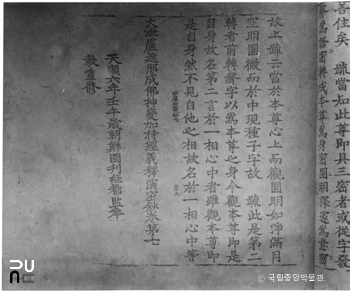 善住矣 疏當知此尊即具三密者或從字發
故上疏云當於本尊心上而觀圓明如淨滿月
空明圓徹而於中現種子字故 疏此是第二
轉者前轉聲字以為本尊之身今觀本尊即是
自身故名第二言於一相心中者雖觀本尊即
是自身然不見自他之相故名於一相心中等
大毗盧遮那成佛神變加持經義釋演密鈔卷第七
天順六年壬午歲朝鮮國刊經都監奉
教重修
국립중앙박물관